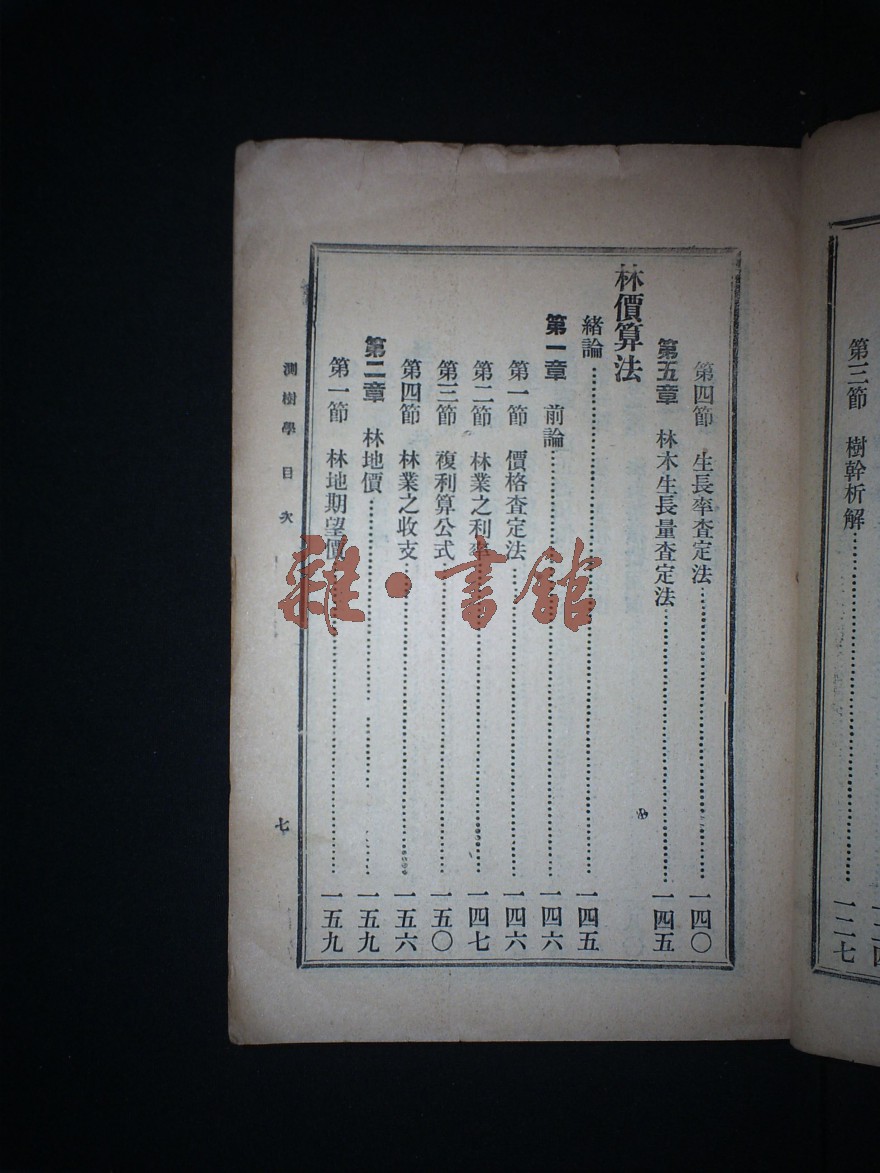 第三節 樹幹析解……一二七
第四節 生長率査定法……一四〇
第五章 林木生長量査定法……一四五
林價算法
緒論……一四五
第一章 前論……一四六
第一節 價格査定法……一四六
第二節 林業之利率……一四七
第三節 複利算公式……一五〇
第四節 林業之收支……一五六
第二章 林地價……一五九
第一節 林地期望價……一五九
測樹學目次
七
雜·書館